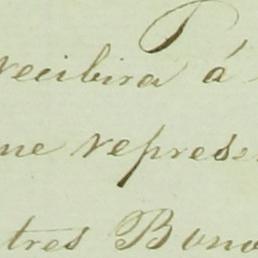 recibira á
ne represe
tres Bono